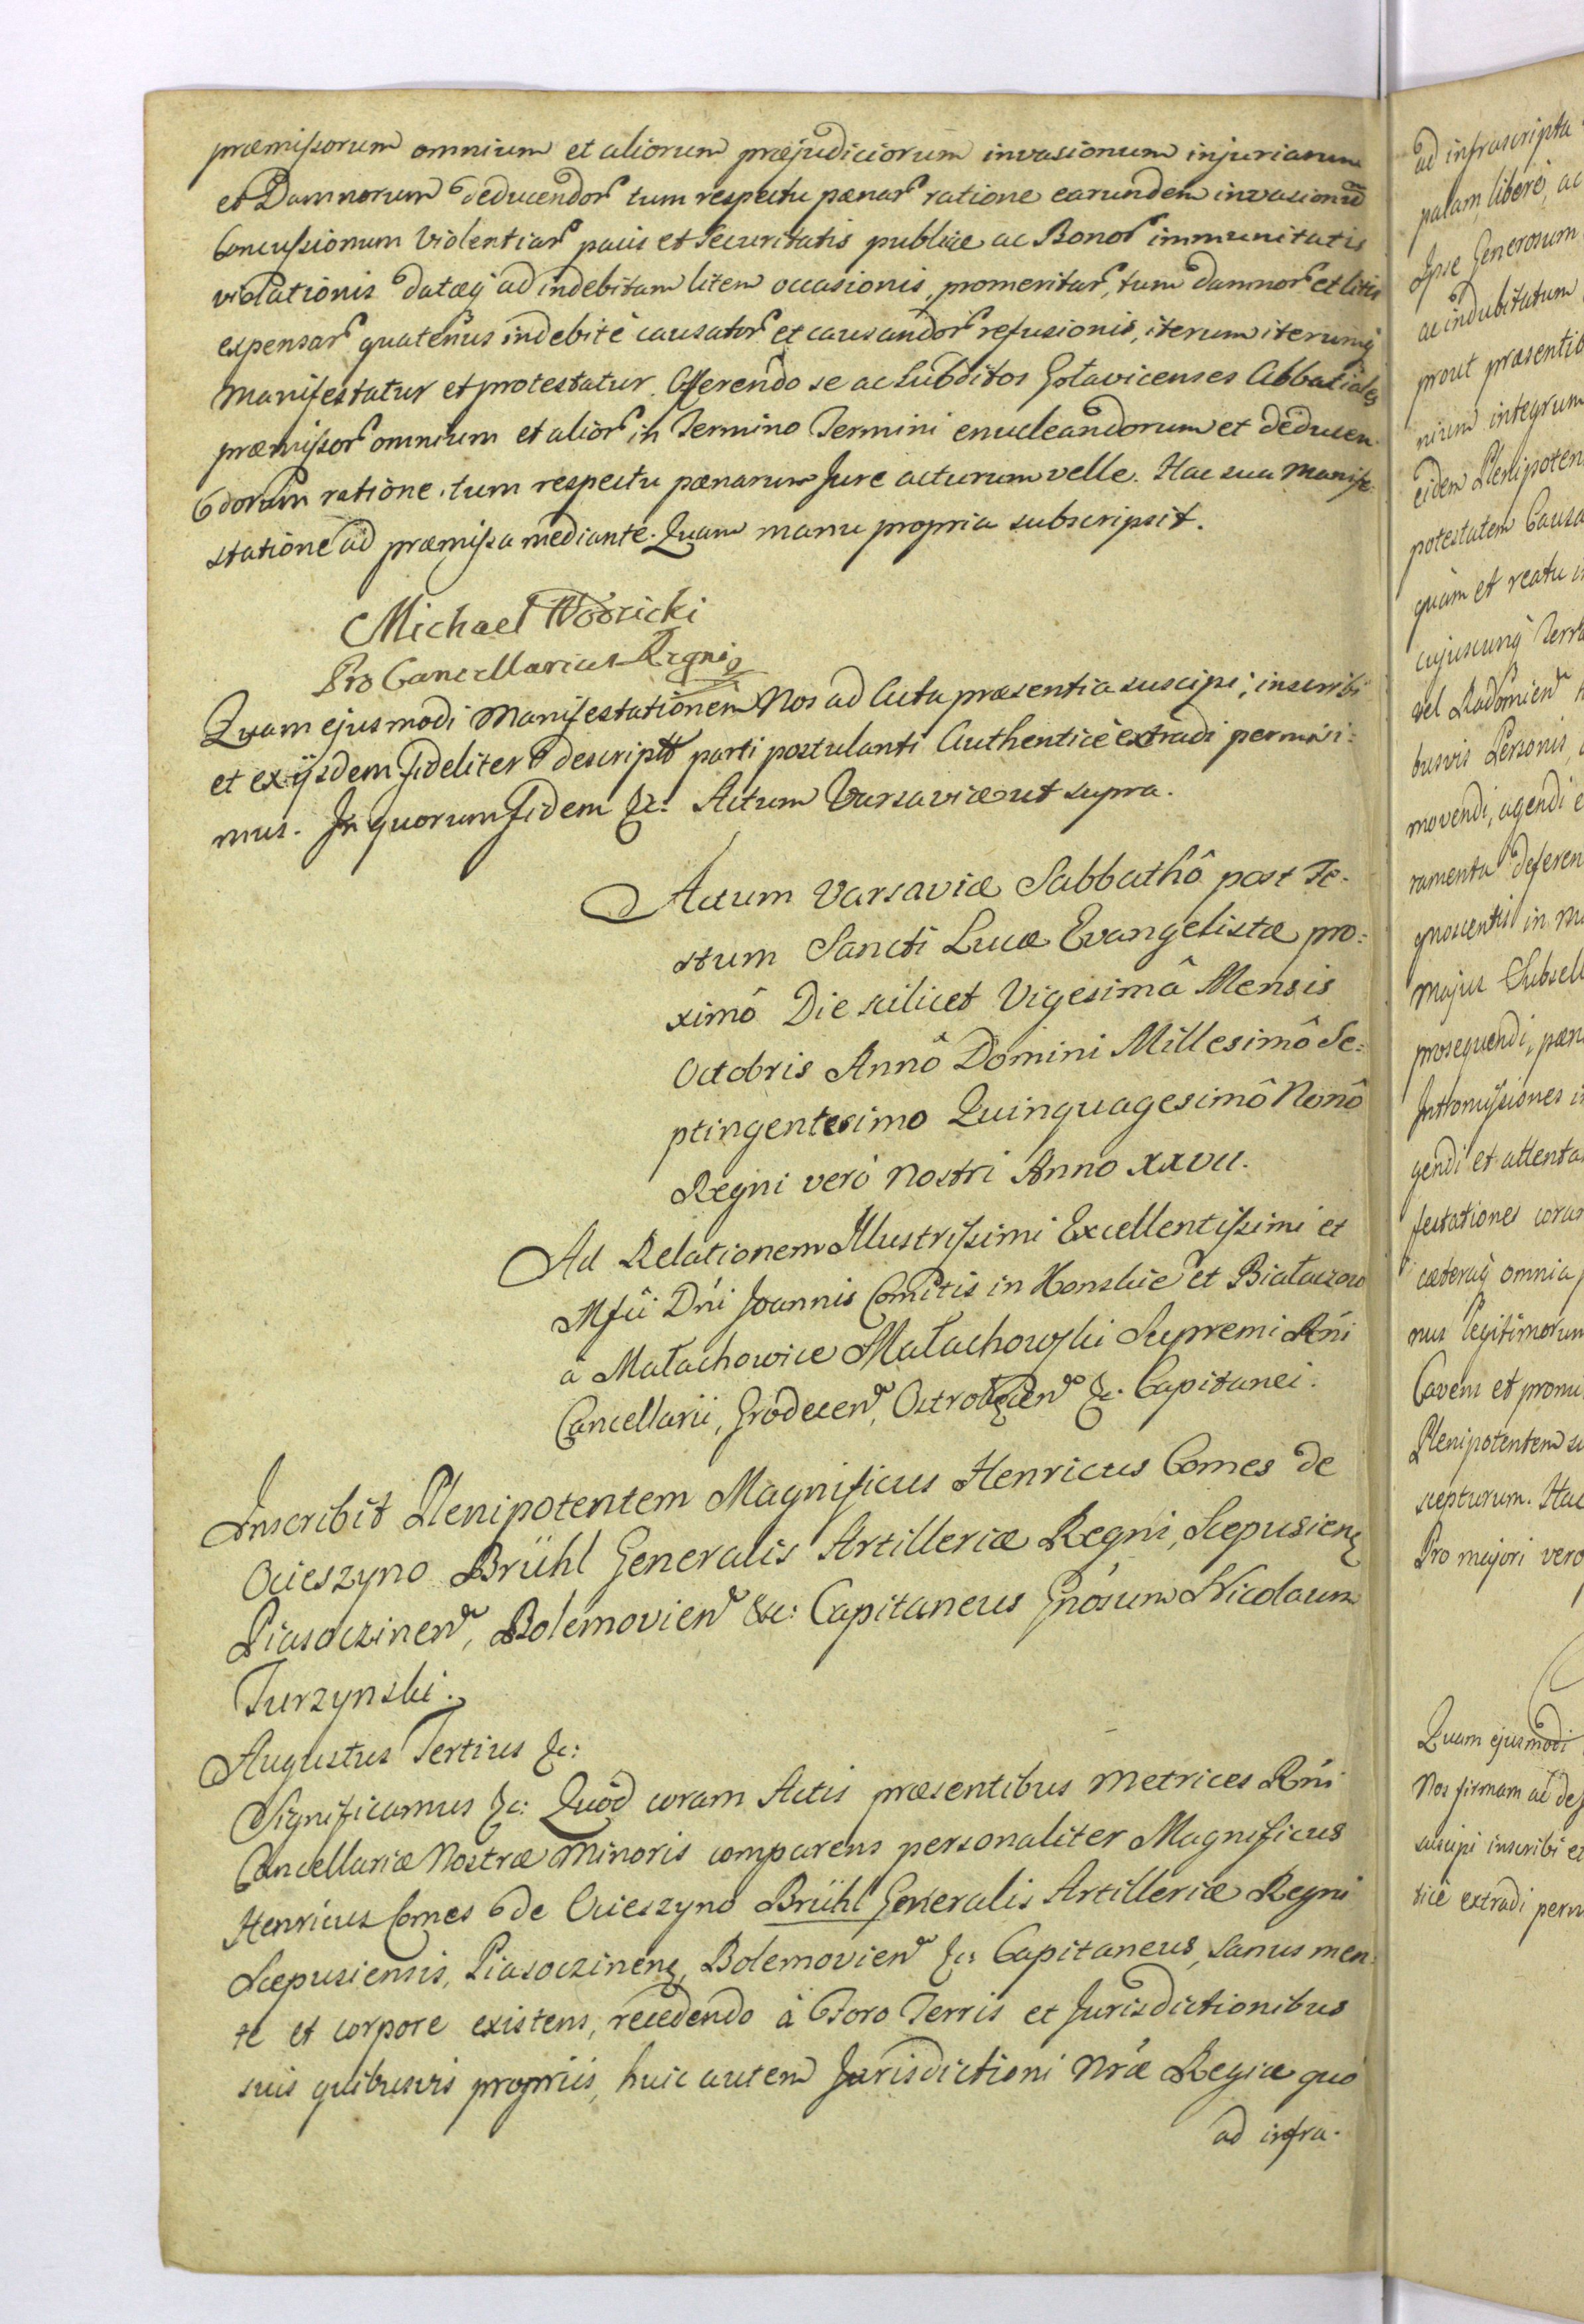 præmissorum omnium et aliorum præjudiciorum invasionum injuriarum
et Damnorum deducendor tum respectu pænar ratione earundem invasionũ
Concussionum Violentiar pacis et Securitatis publicæ ac Bonor immunitatis
violationis datæq ad indebitam litem occasionis, promeritar, tum damnor et litis
expensar quatenus indebitè causator et causandor refusionis, iterum iterumq
manifestatur et protestatur. Offerendo se ac Subditos Gołavicenses Abbatiales
præmissor omnium et alior in Termino Termini enucleandorum et deducen
dorum ratione, tum respectu pænarum Jure acturum velle. Hac sua manife
statione ad præmissa mediante. Quam manu propria subscripsit.
Michael Wodzicki
Pro Cancellarius Regni
Quam ejusmodi Manifestationem Nos ad Acta præsentia suscipi, inscribi
et ex ijsdem fideliter descriptã parti postulanti Authenticè extradi permisi:
mus. In quorum Fidem &c: Actum Varsaviæ ut supra.
Actum Varsaviæ Sabbathô post Fe-
stum Sancti Lucæ Evangelistæ pro:
ximô Die scilicet Vigesimâ Mensis
Octobris Annô Domini Millesimô Se:
ptingentesimo Quinquagesimô Nonô
Regni verò Nostri Anno XXVII.
Ad Relationem Illustrissimi Excellentissimi et
Mfci Dni Joannis Comitis in Konskie et Białaczow
à Małachowice Małachowski Supremi Rni
Cancellarii, Grodecen, Ostrołęcen &c. Capitanei.
Inscribit Plenipotentem Magnificus Henricus Comes de
Ocieszyno Brühl Generalis Artilleriæ Regni, Scepusien
Piasoczinen, Bolemovien &c: Capitaneus Gnosum Nicolaum
Turzynski.
Augustus Tertius &c:
Significamus &c: Quod coram Actis præsentibus Metrices Rni
Cancellariæ Nostræ Minoris comparens personaliter Magnificus
Henricus Comes de Ocieszyno Brühl Generalis Artilleriæ Regni
Scepusiensis, Piasoczinen, Bolemovien &c: Capitaneus, sanus men
te et corpore existens, recedendo à Foro Terris et Jurisdictionibus
suis quibusvis propriis, huic autem Jurisdictioni Nræ Regiæ quò
ad infra.
ad infrascripta
palam, liberè, ac
Ipse Generosum
ac indubitatum
prout præsentib
nium integrum
eidem Plenipoten
potestatem Causa
quàm et reatu
cujuscunq Terra
vel Radomien
busvis Personis,
movendi, agendi e
ramenta deferen
gnoscentis in
majus Subsell
prosequendi, pæn
Intromissiones
gendi et attenta
festationes coram
cæteraq omnia
nus legitimorum
Cavens et promi
Plenipotentem su
scepturum. Hac
Pro majori vero
Quam ejusmodi
Nos firmam ac
suscipi inscribi et
ticè extradi perm